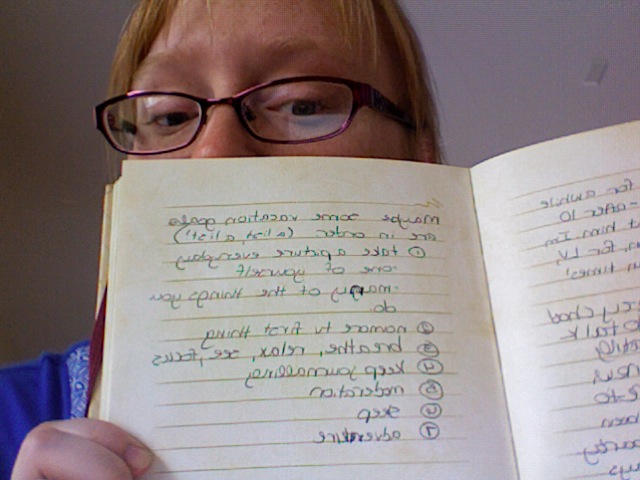 Maybe some vacation goals
are in order (a list, a list!)
① take a picture everyday
-one of yourself
-many of the things you
do
② nomore tv first thing
③ breathe, relax, see, focus
④ keep journalling
⑤ moderation
⑥ sleep
⑦ adventure
for awhile
-after 10
him I'm
for LV
times!
talk